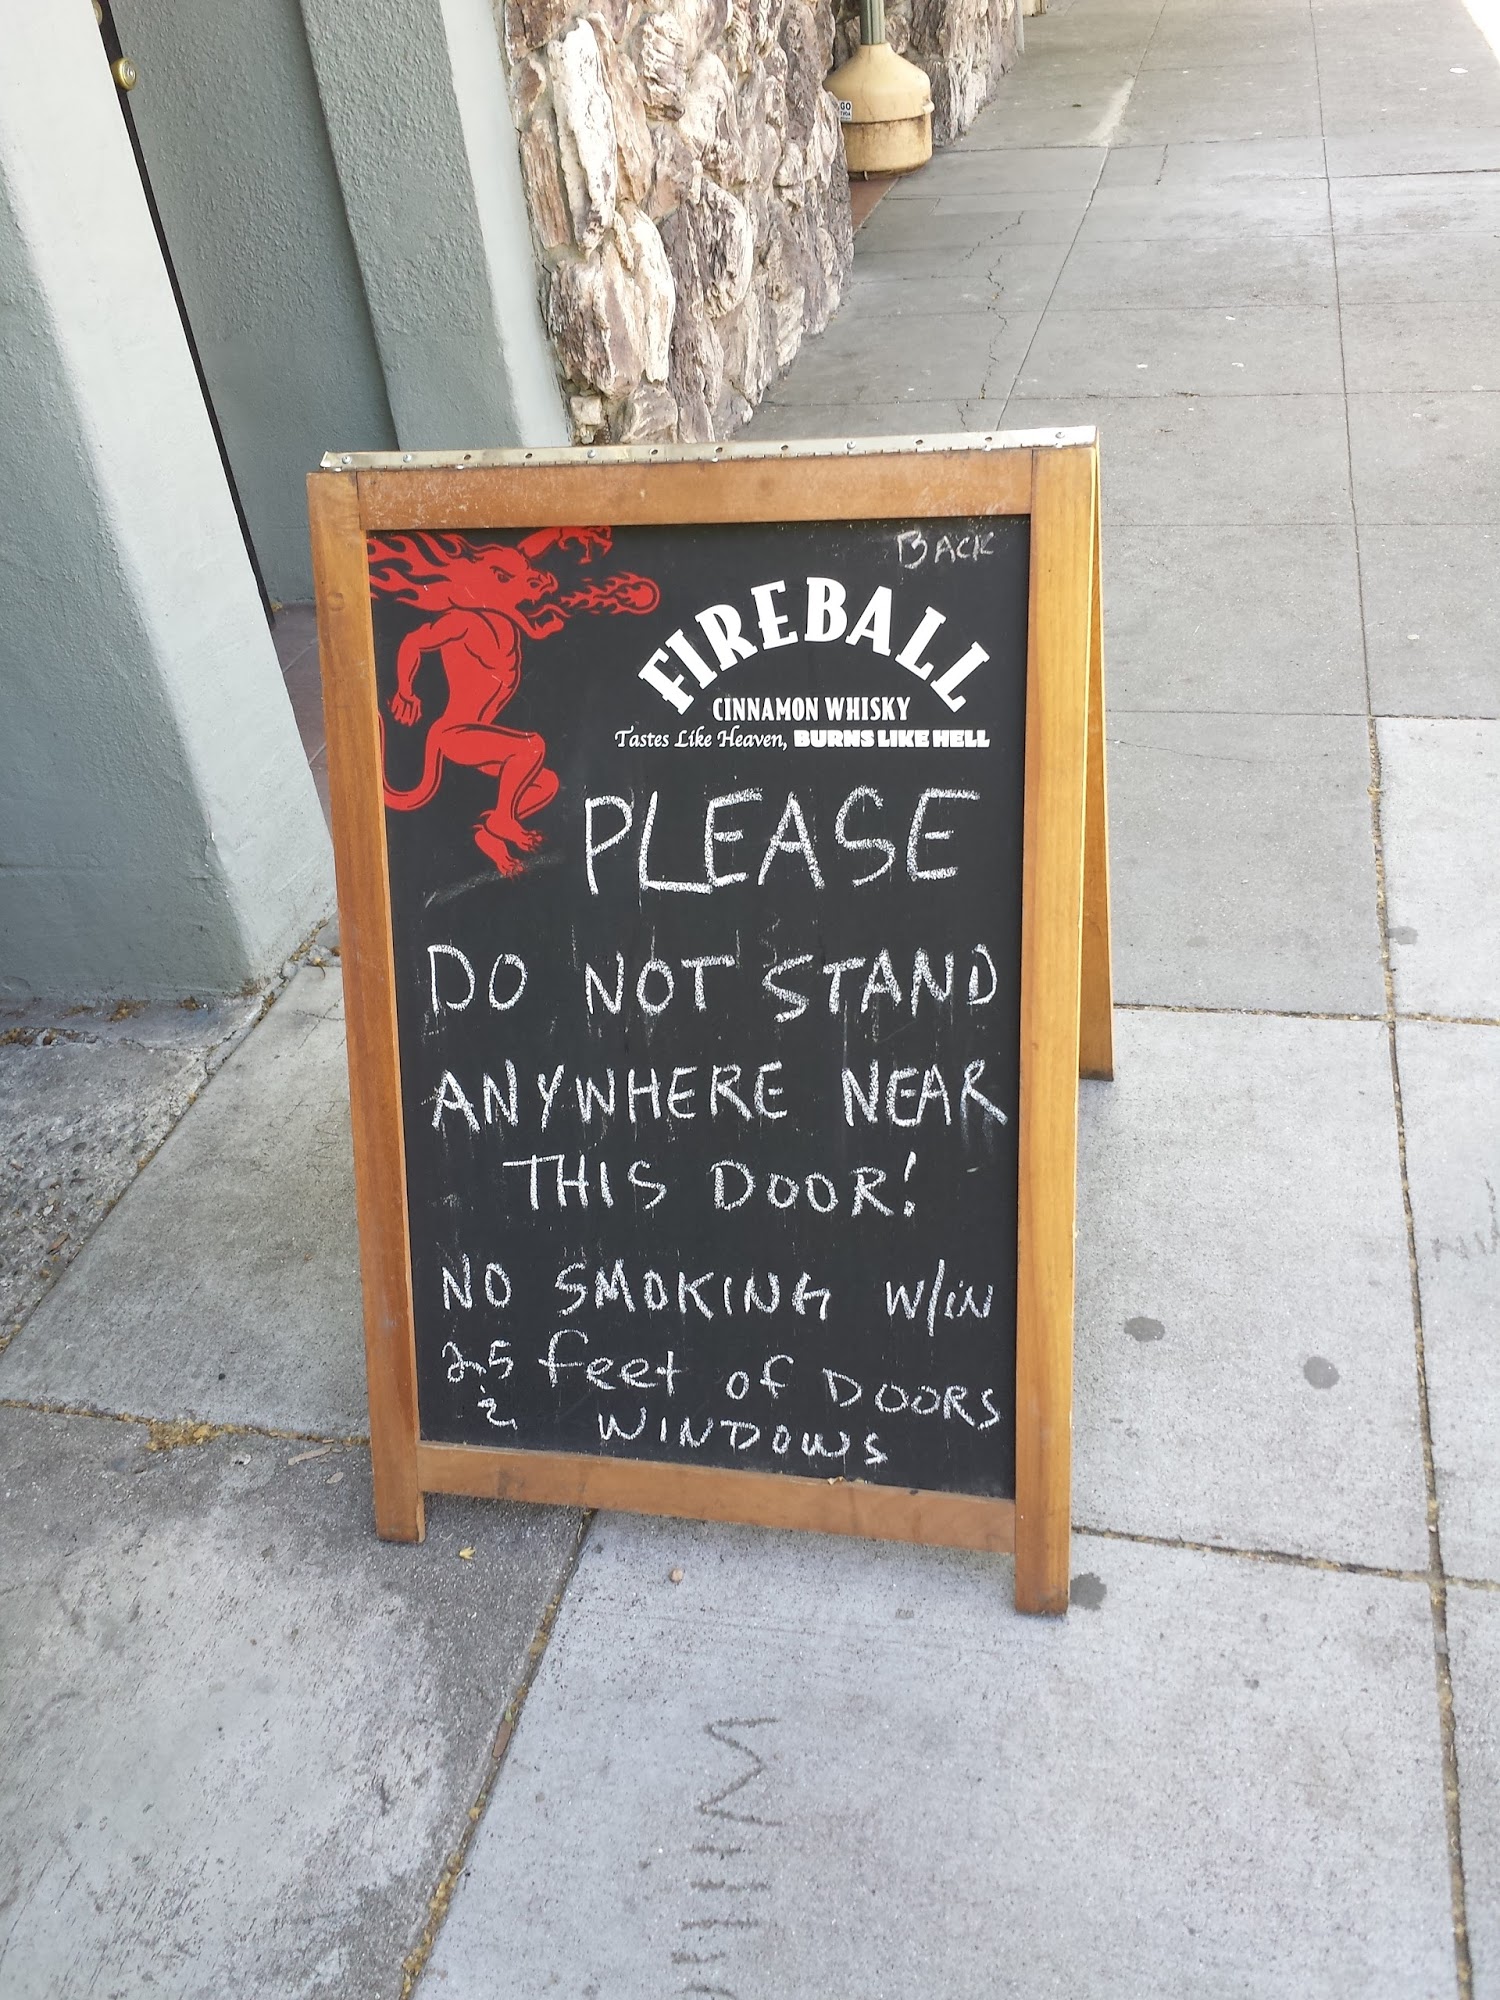 BACK
FIREBALL
CINNAMON WHISKY
Tastes Like Heaven, BURNS LIKE HELL
PLEASE
DO NOT STAND
ANYWHERE NEAR
THIS DOOR!
NO SMOKING W/in
25 feet of DOORS
& WINDOWS
GO